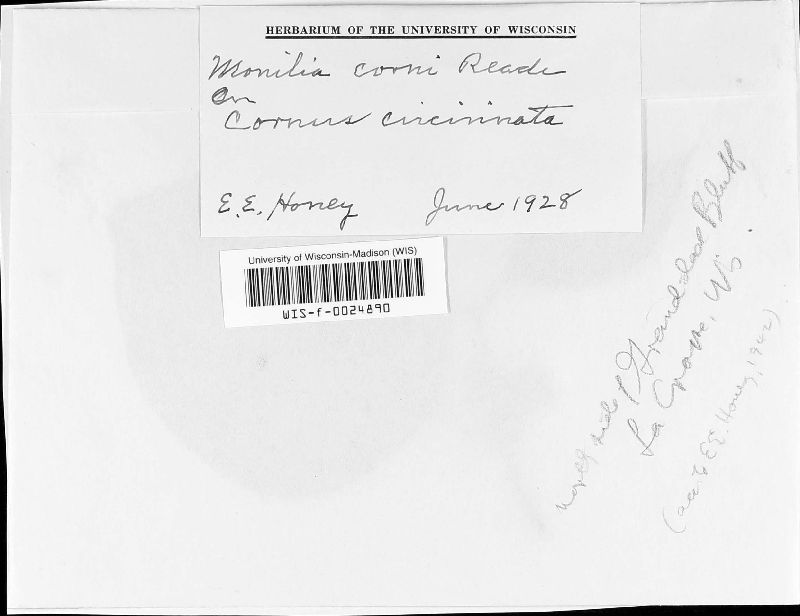 HERBARIUM OF THE UNIVERSITY OF WISCONSIN
Monilia corni Reade
on
Cornus circinnata
E. E. Honey June 1928
University of Wisconsin-Madison (WIS)
WIS-f-0024890
north side of Grandidad Bluff
La Crosse, Wis.
(acc. to E.E. Honey, 1942)